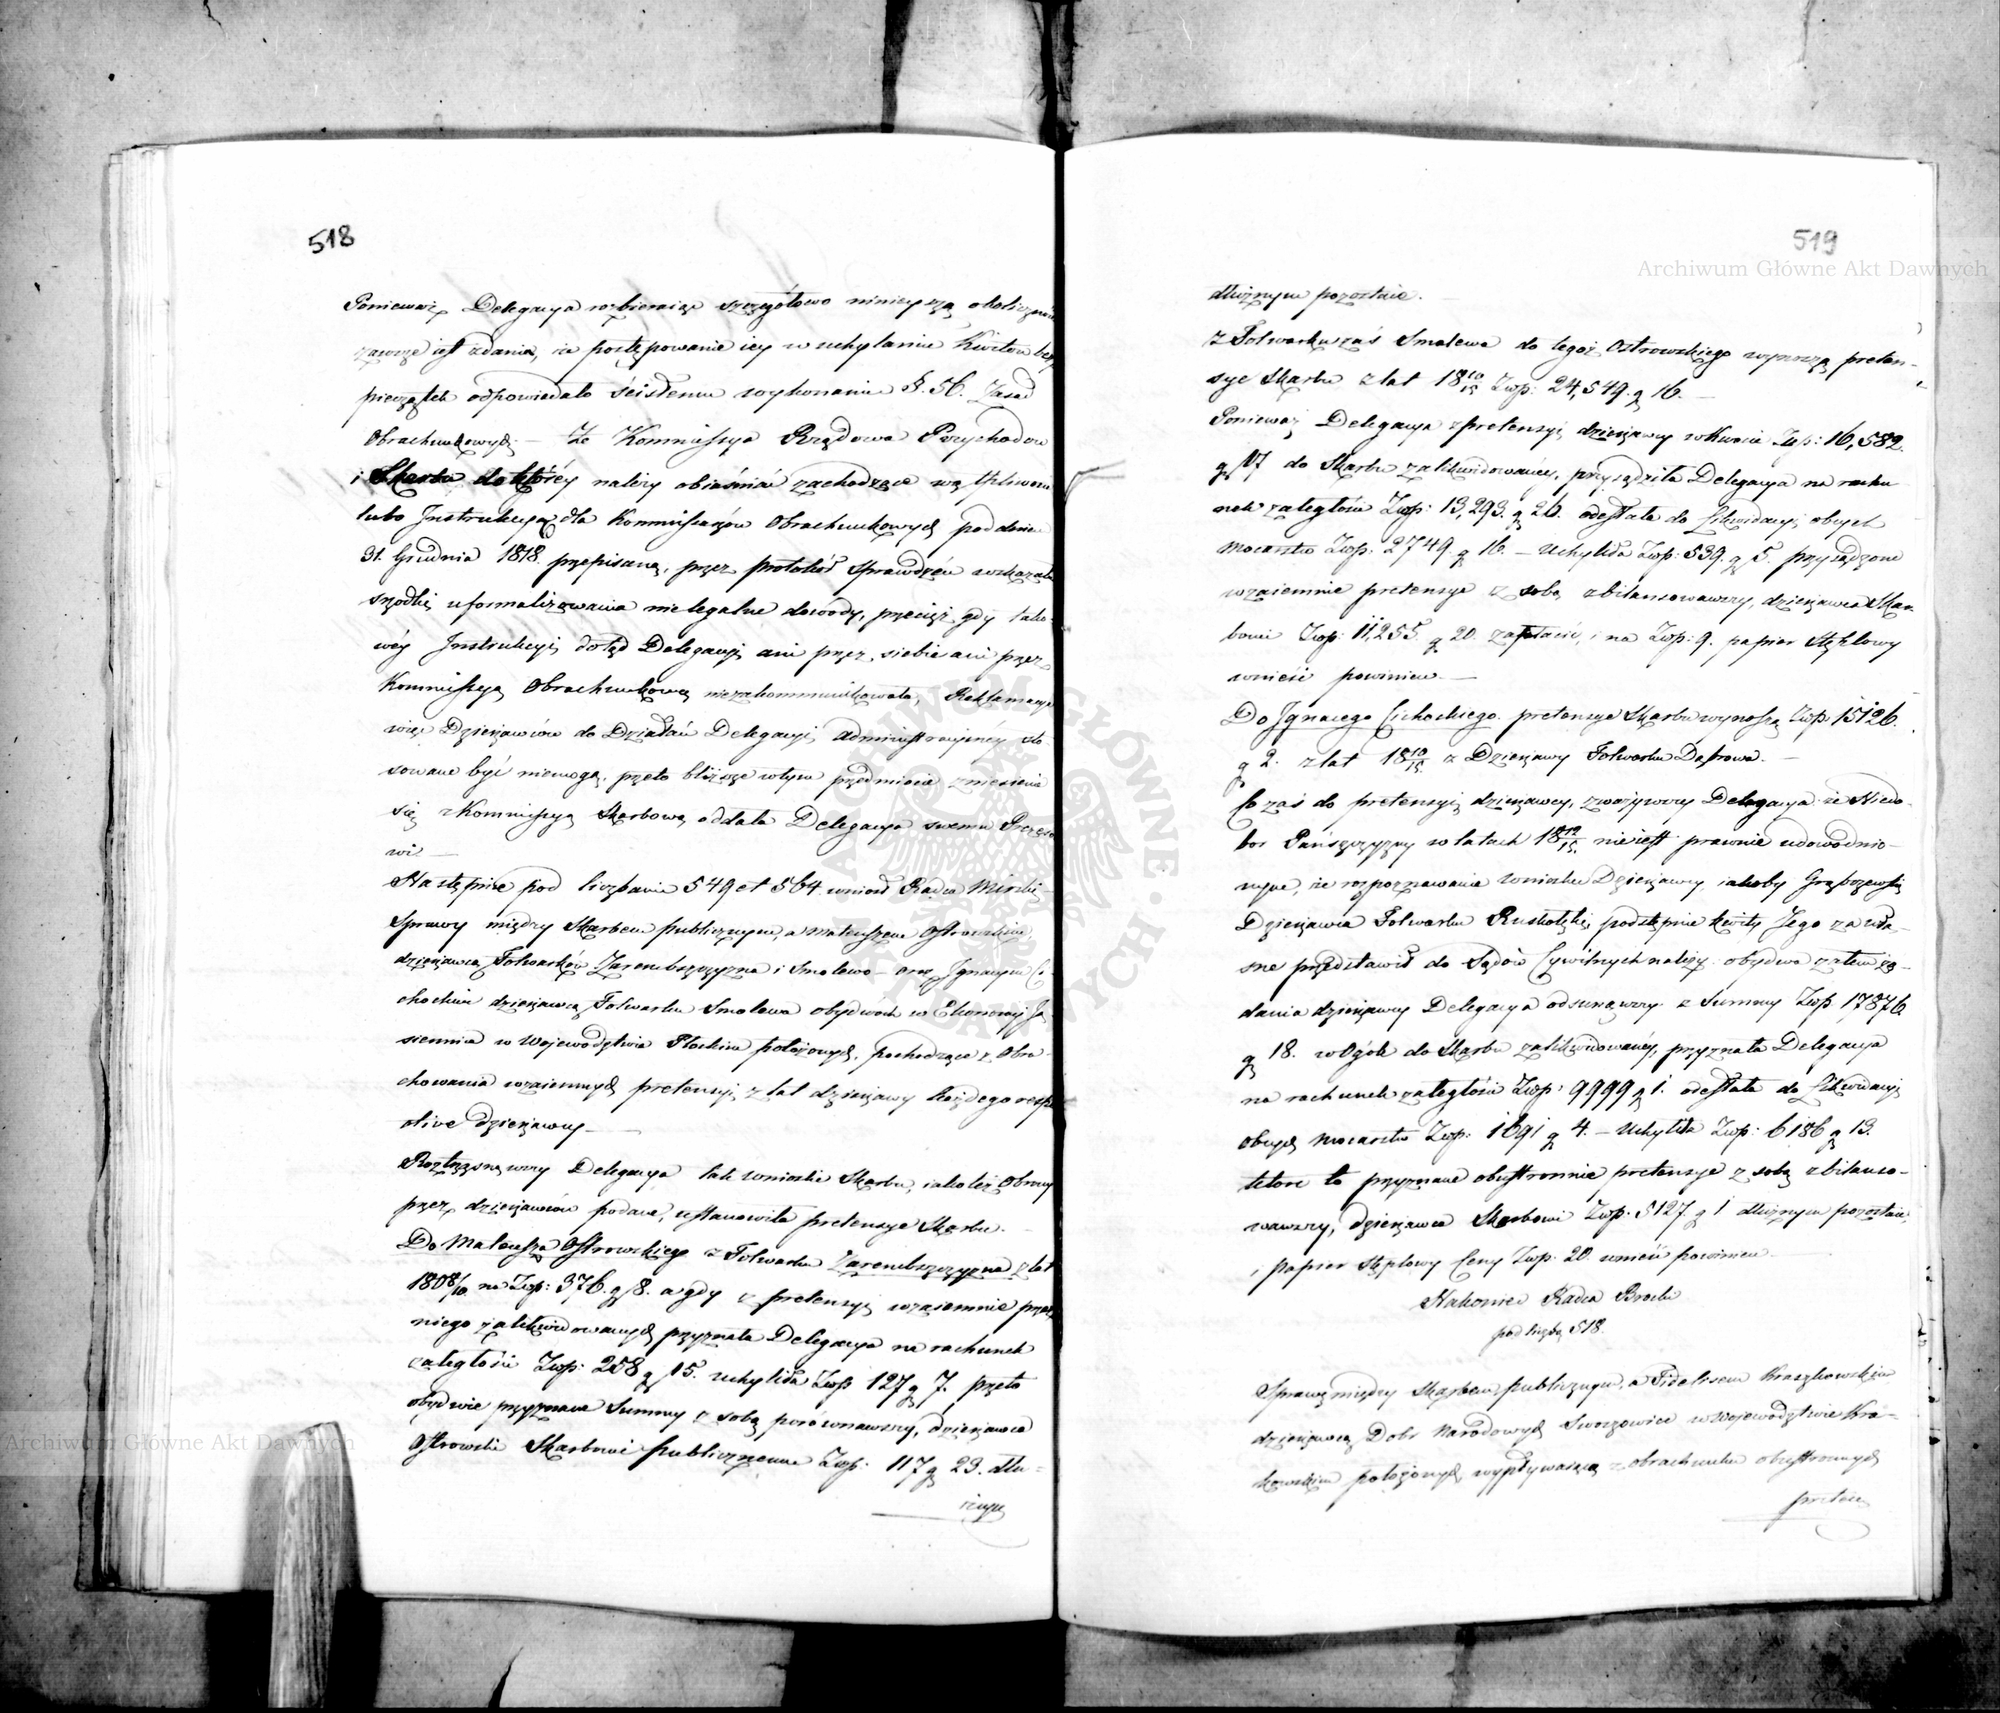 518
Poniewaź Delegacya rozbieraiąc szczegółowo ninieyszą okoliczność
zawsze iest zdania, że postępowanie iey w uchylaniu Kwitów bez
pieczątek odpowiadało ścisłemu wykonaniu §. 56. Zasad
Obrachunkowych — Że Kommissya Rządowa Przychodów
i Skarbu do któréy należy obiaśniać zachodzące wątpliwości
lubo Instrukcyą dla Kommissarzów Obrachunkowych pod dniem
31. Grudnia 1818. przepisaną, przez protokół Sprawdzeń wskazała
srzodki uformalizowania nielegalne dowody, przecież gdy tako-
wéy Instrukcyi dotąd Delegacyi ani przez siebie ani przez
Kommissyą Obrachunkową niezakommunikowała, Reklamacye
więc Dzierżawców do Działań Delegacyi Administracyinéy sto-
sowane być niemogą, przeto bliższe w tym przedmiocie zniesienie
się z Kommissyą Skarbową oddała Delegacya swemu Prezeso
wi —
Następnie pod liczbami 549 et 564 wniosł Radca Mirski
Sprawy między Skarbem publicznym, a Mateuszem Ostrowskim,
dzierżawcą Folwarków Zarembszczyzna i Smolewo — oraz Ignacym Ci
chockim dzierżawcą Folwarku Smolewa obydwóch w Ekonomii Ja
siennica w Woiewodztwie Płockim położonych, pochodzące z Obra-
chowania wzaiemnych pretensyi z lat dzierżawy każdego resp
ective dzierżawcy —
Roztrząsnąwszy Delegacya tak wnioski Skarbu, iako też Obrony
przez dzierżawców podane, ustanowiła pretensye Skarbu.
Do Mateusza Ostrowskiego z Folwarku Zarembszczyzna z lat
1808/10 na Złp: 376. g 8. a gdy z pretensyi wzaiemnie przez
niego zalikwidowanych przyznała Delegacya na rachunek
zaległości Złp: 258 g 15. uchyliła Złp 127 g 7. przeto
obydwie przyznane Summy z sobą porównawszy, dzierżawca
Ostrowski Skarbowi publicznemu Złp: 117 g 23. dłu-
żnym
519
dłużnym pozostaie.
Z Folwarku zaś Smolewa do tegoż Ostrowskiego wynoszą preten-
sye Skarbu z lat 18 10/15 Złp: 24,549. g 16. —
Ponieważ Delegacya z pretensyi dzierżawcy w kwocie Złp: 16,582.
g 17 do Skarbu zalikwidowanéy, przysądziła Delegacya na rachu
nek zaległości Złp: 13,293. g 26. odesłała do Likwidacyi obcych
mocarstw Złp: 2749. g 16. — Uchyliła Złp: 539. g 5. przysądzone
wzaiemnie pretensye z sobą zbilansowawszy, dzierżawca Skar
bowi Złp: 11,255. g 20. zapłacić, i na Złp: 9. papier Stęplowy
wnieść powinien. —
Do Ignacego Cichockiego. pretensye Skarbu wynoszą Złp 15126.
g 2. z lat 18 10/15 z Dzierżawy Folwarku Dąbrowa. —
Co zaś do pretensyi dzierżawcy, zważywszy Delegacya że Niedo-
bor Pańszczyzny w latach 18 12/15. nieiest prawnie udowodnio-
nym, że rozpoznawanie wniosku Dzierżawcy iakoby Grąbczewski
Dzierżawca Folwarku Ruskołęki podstępnie kwity Jego za wła-
sne przedstawił do Sądów Cywilnych należy: obydwa zatem żą-
dania dzierżawcy Delegacya odsunąwszy z Summy Złp 17876
g 18. wOgóle do Skarbu zalikwidowanéy, przyznała Delegacya
na rachunek zaległości Złp: 9999 g 1. odesłała do Likwidacyi
obcych mocarstw Złp: 1691 g 4. — Uchyliła Złp: 6186 g 13.
które to przyznane obustronnie pretensye z sobą zbilanso-
wawszy, dzierżawca Skarbowi Złp: 5127 g 1 dłużnym pozostaie,
i papier stęplowy Ceny Złp. 20 wnieść powinien —
Nakoniec Radca Brocki
pod liczbą 518.
Sprawę między Skarbem publicznym, a Fidelisem Kraszkowskim
dzierżawcą Dobr Narodowych Swoszowice w Woiewodztwie Kra-
kowskim położonych, wypływaiącą z obrachunku obustronnych
preten
Archiwum Główne Akt Dawnych
Archiwum Główne Akt Dawnych
ARCHIWUM GŁÓWNE AKT DAWNYCH